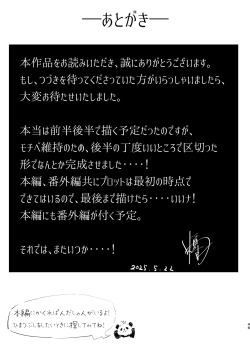 ―あとがき―
本作品をお読みいただき、誠にありがとうございます。
もし、つづきを待ってくださっていた方がいらっしゃいましたら、
大変お待たせいたしました。
本当は前半後半で描く予定だったのですが、
モチベ維持のため、後半の丁度いいところで区切った
形でなんとか完成させました・・・・！
本編、番外編共にプロットは最初の時点で
できてはいるので、最後まで描けたら・・・・いいナ！
本編にも番外編が付く予定。
それでは、またいつか・・・・！
2025.5.22
本編にかくれぱんだしゃんがいるよ！
ひまつぶしをしたいときに探してみてね！